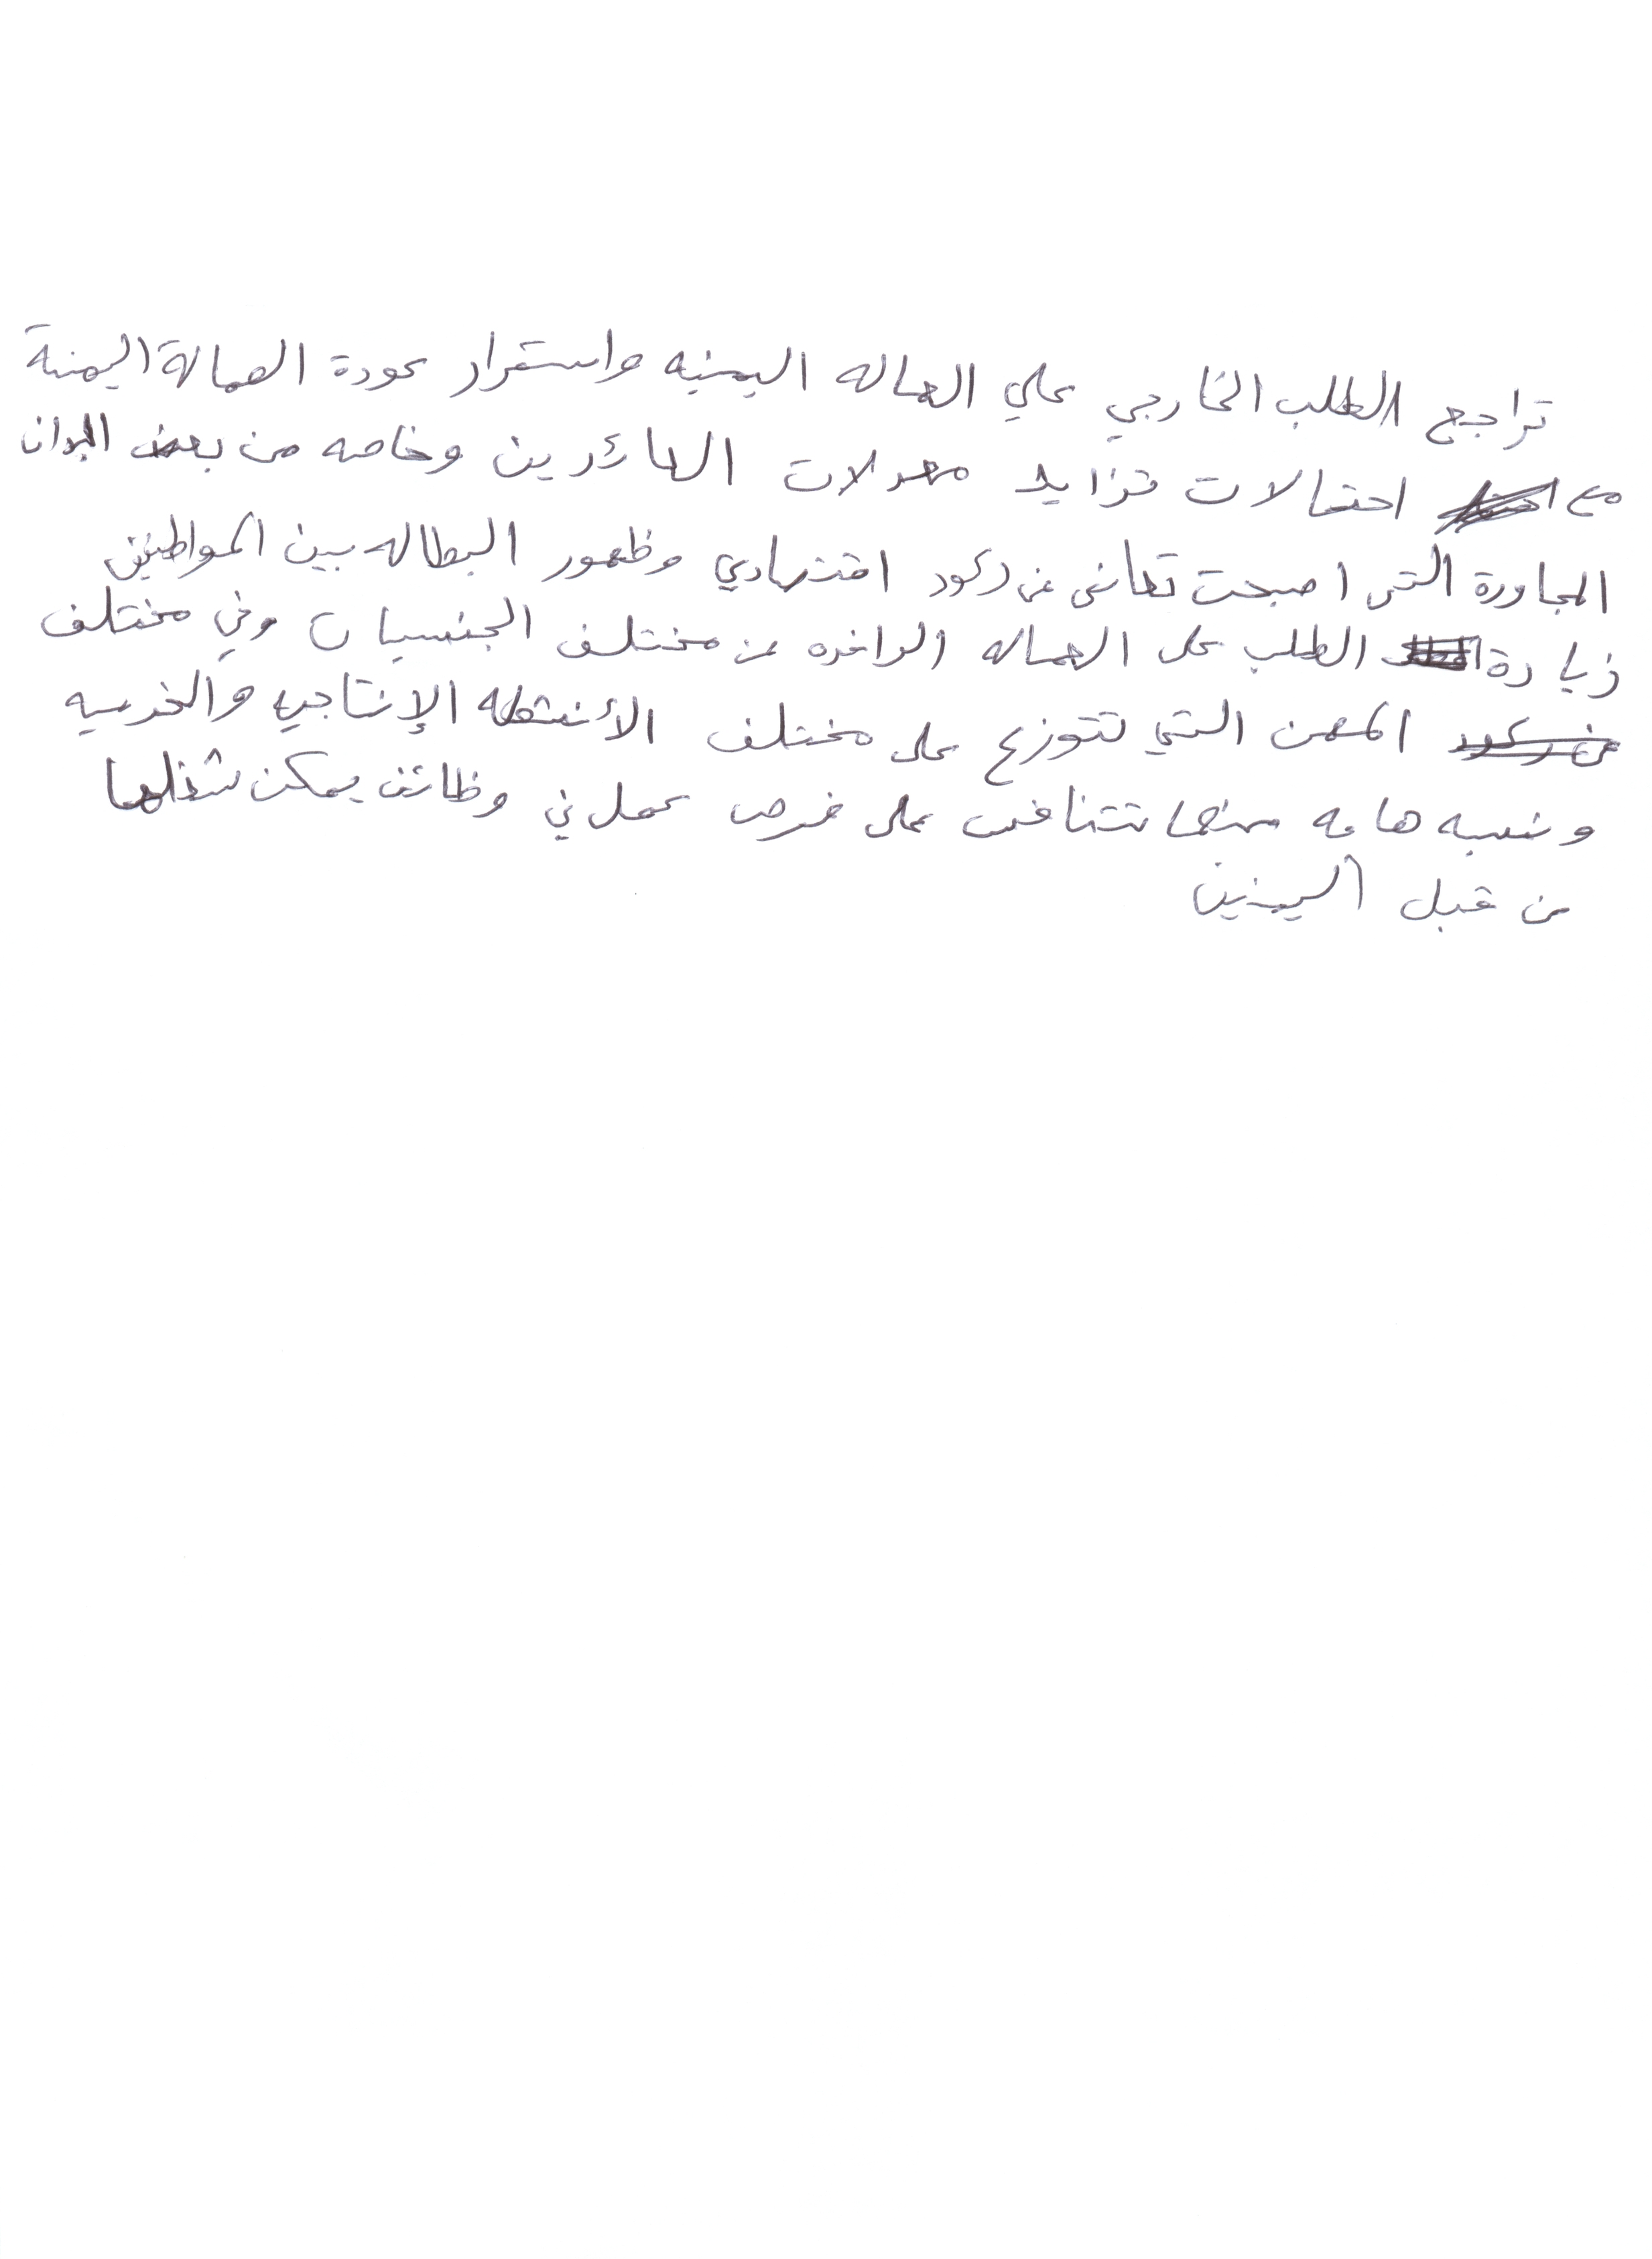 تراجع الطلب الخارجي علي العماله اليمنيه واستمرار عودة العمالة اليمنية
مع احتمالات تزايد معدلات العائدين وخاصه من بعض البدان
المجاورة التى اصبحت تعانى من ركود اقتصادي وظهور البطاله بين المواطنين
زيادة الطلب على العماله الوافده من مختلف الجنسيات وفي مختلف
المهن التي تتوزع على مختلف الأنشطه الإنتاجيه والخدميه
ونسبه هامه منها تتنافس على فرص عمل في وظائف يمكن شغلها
من قبل اليمنيين